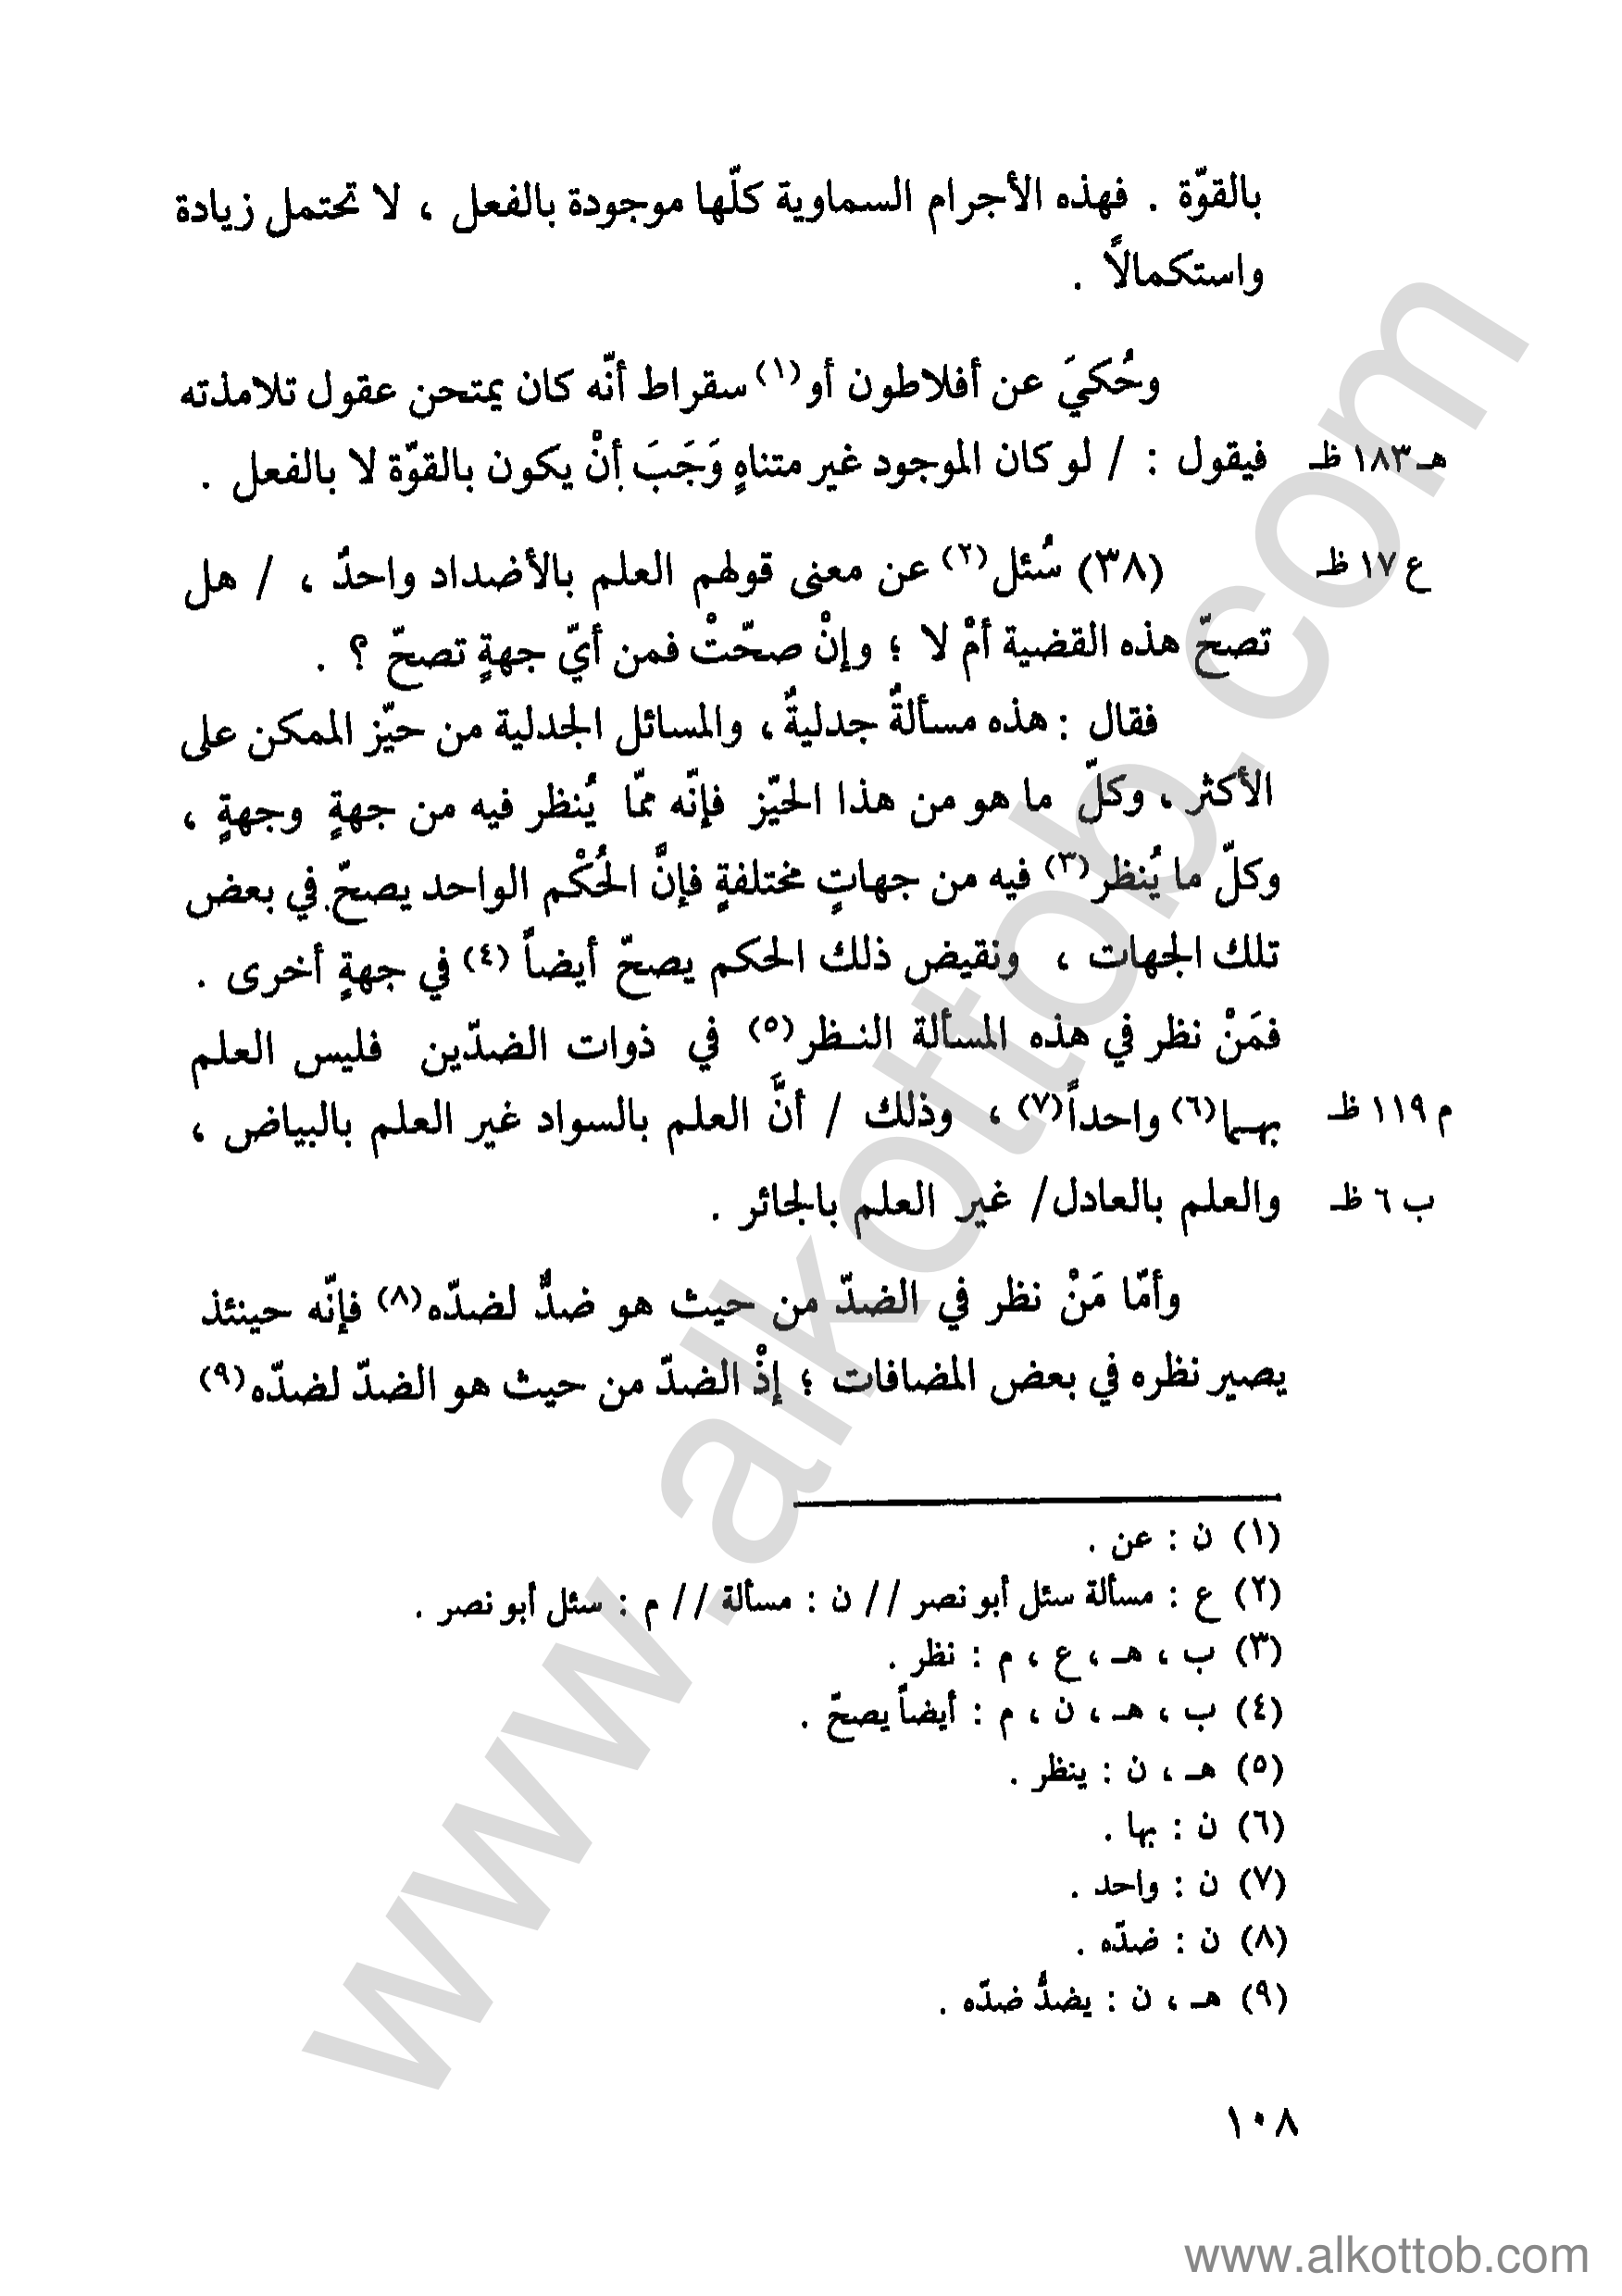 بالقوّة . فهذه الأجرام السماوية كلّها موجودة بالفعل ، لا تحتمل زيادة
واستكمالاً .
وحُكيَ عن أفلاطون أو(١) سقراط أنّه كان يمتحن عقول تلامذته
هـ ١٨٣ ظ فيقول : / لو كان الموجود غير متناهٍ وَجَبَ أنْ يكون بالقوّة لا بالفعل .
ع ١٧ ظ (٣٨) سُئل(٢) عن معنى قولهم العلم بالأضداد واحدٌ ، / هل
تصحّ هذه القضية أمْ لا ؛ وإنْ صحّتْ فمن أيّ جهةٍ تصحّ ؟ .
فقال : هذه مسألةٌ جدليةٌ ، والمسائل الجدلية من حيّز الممكن على
الأكثر ، وكلّ ما هو من هذا الحيّز فإنّه ممّا يُنظر فيه من جهةٍ وجهةٍ ،
وكلّ ما يُنظر(٣) فيه من جهاتٍ مختلفةٍ فإنَّ الحُكْم الواحد يصحّ في بعض
تلك الجهات ، ونقيض ذلك الحكم يصحّ أيضاً (٤) في جهةٍ أخرى .
فمَنْ نظر في هذه المسألة النـظر(٥) في ذوات الضدّين فليس العلم
م ١١٩ ظ بهـما(٦) واحداً(٧) ، وذلك / أنَّ العلم بالسواد غير العلم بالبياض ،
ب ٦ ظ والعلم بالعادل/ غير العلم بالجائر .
وأمّا مَنْ نظر في الضدّ من حيث هو ضدٌّ لضدّه(٨) فإنّه حينئذ
يصير نظره في بعض المضافات ؛ إذْ الضدّ من حيث هو الضدّ لضدّه(٩)
(١) ن : عن .
(٢) ع : مسألة سئل أبو نصر // ن : مسألة // م : سئل أبو نصر .
(٣) ب ، هـ ، ع ، م : نظر .
(٤) ب ، هـ ، ن ، م : أيضاً يصحّ .
(٥) هـ ، ن : ينظر .
(٦) ن : بها .
(٧) ن : واحد .
(٨) ن : ضدّه .
(٩) هـ ، ن : يضدُّ ضدّه .
١٠٨
www.alkottob.com
www.alkottob.com